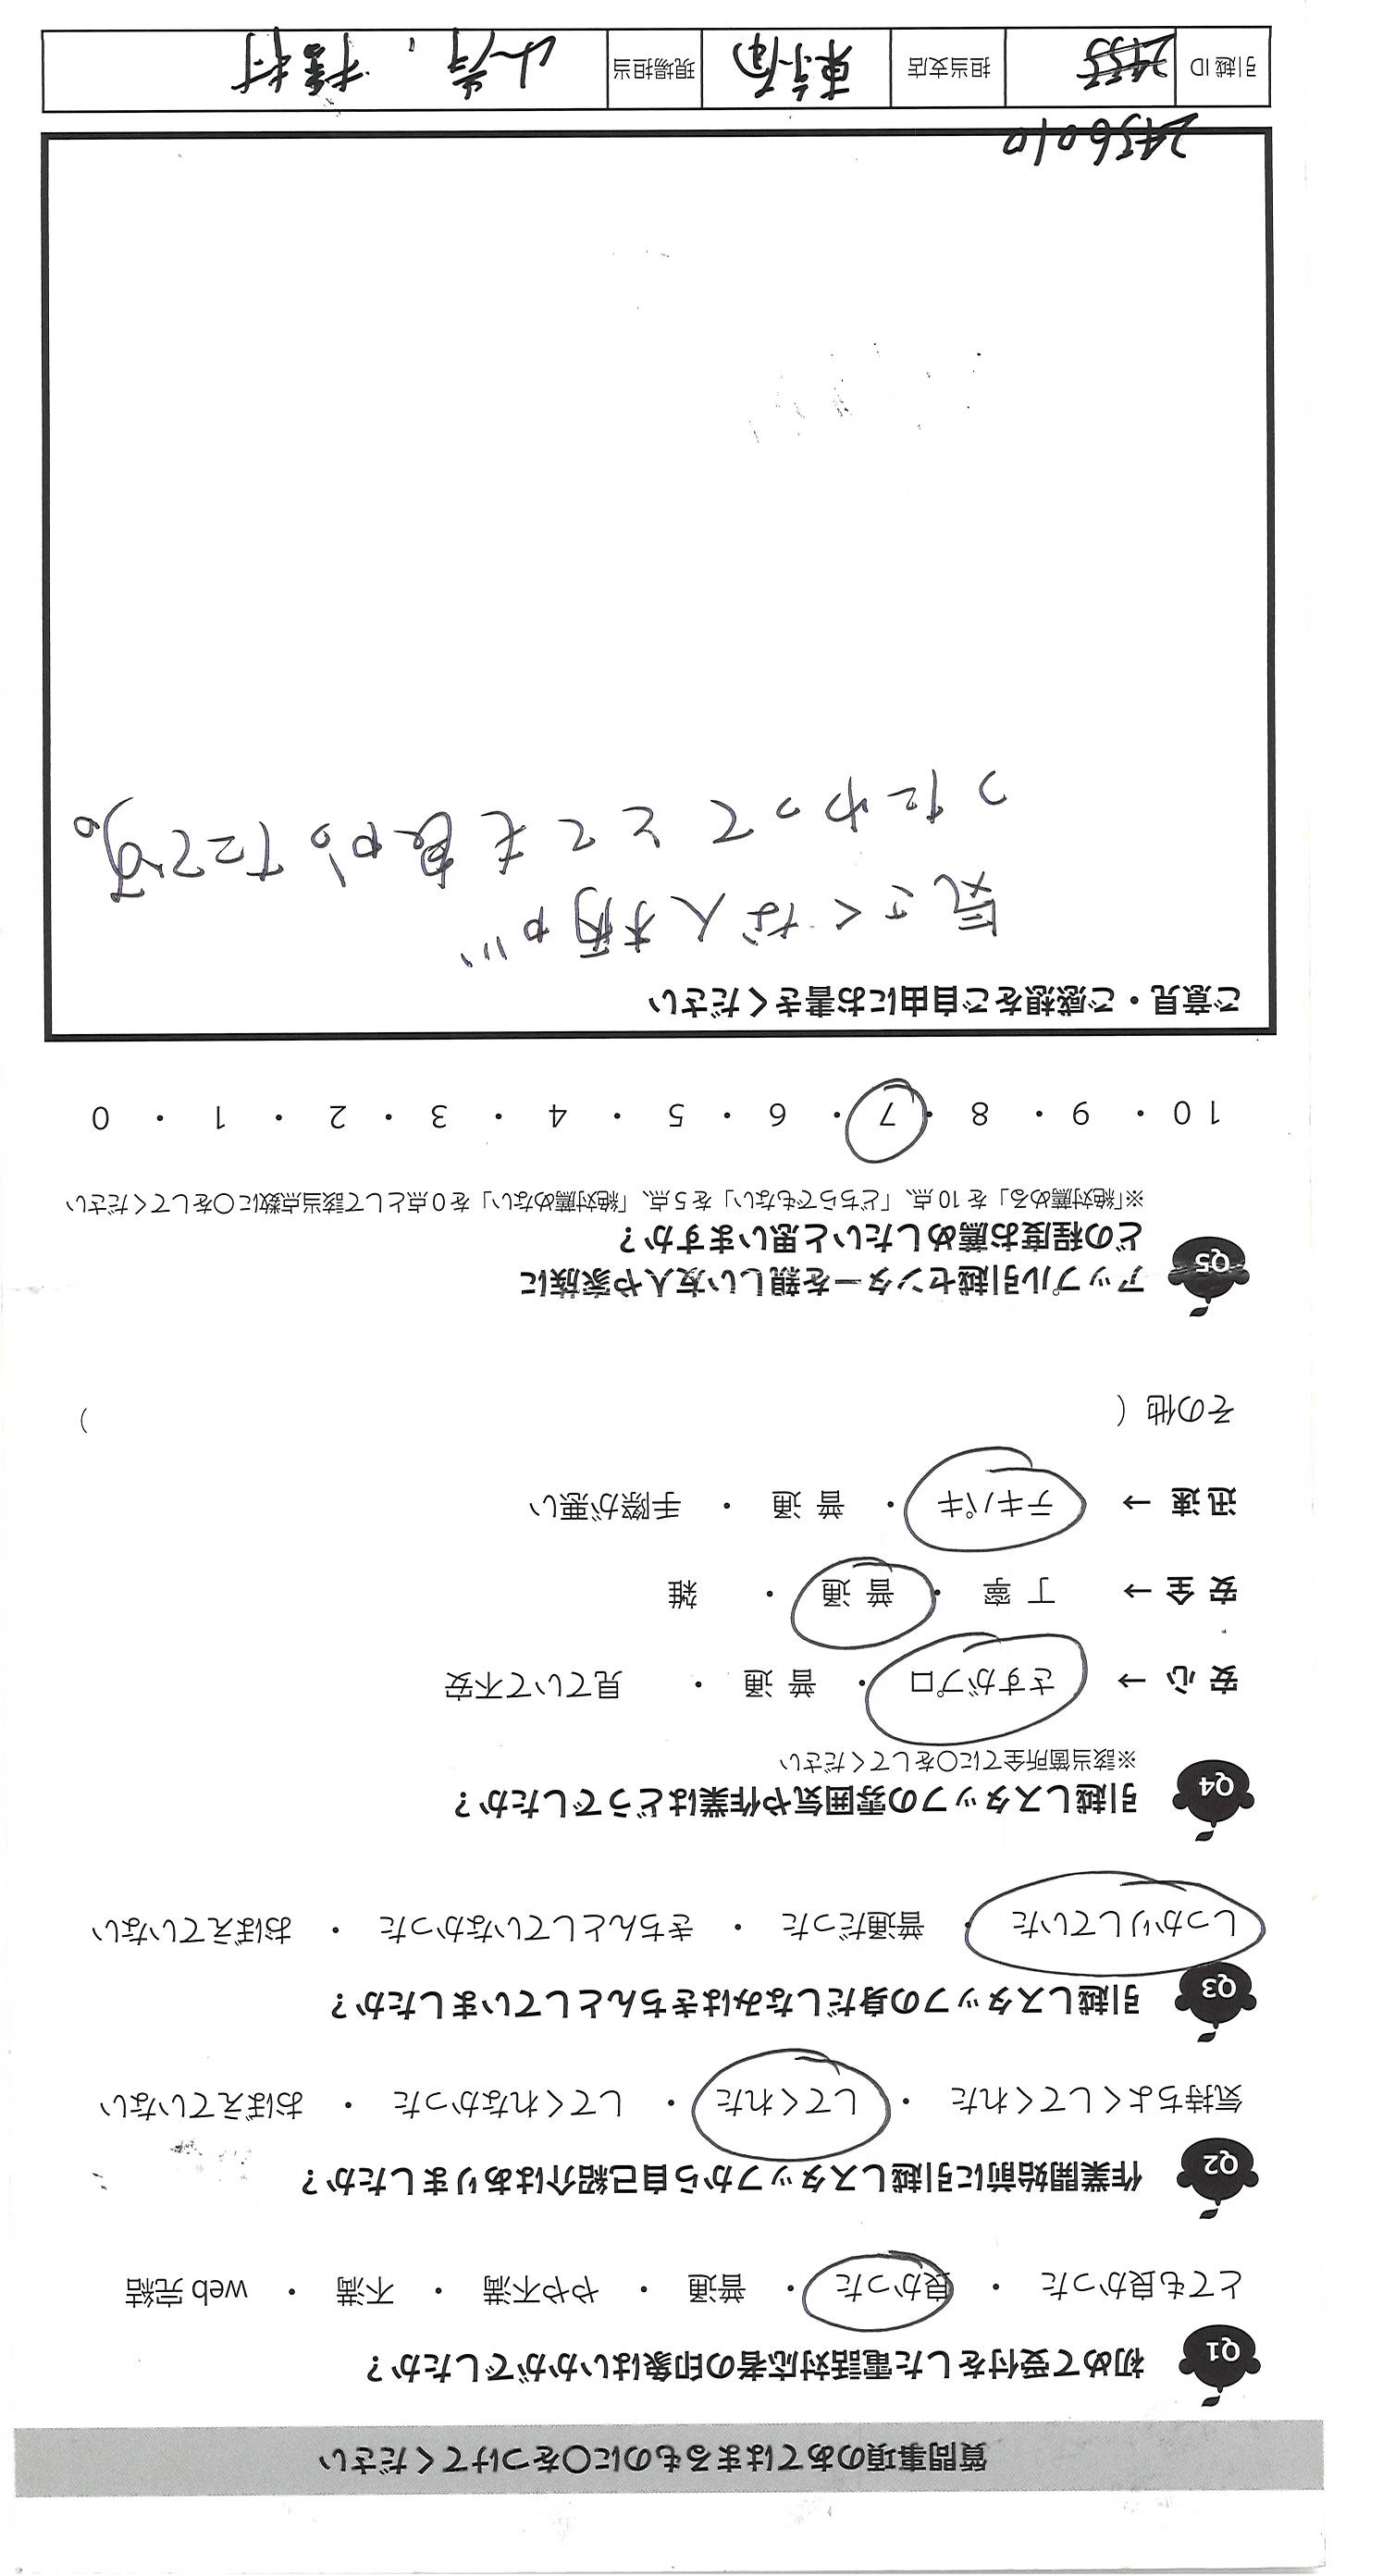 質問事項のあてはまるものに○をつけてください
Q1 初めて受付をした電話対応者の印象はいかがでしたか？
とても良かった ・ 良かった ・ 普通 ・ やや不満 ・ 不満 ・ web 完結
Q2 作業開始前に引越しスタッフから自己紹介はありましたか？
気持ちよくしてくれた ・ してくれた ・ してくれなかった ・ おぼえていない
Q3 引越しスタッフの身だしなみはきちんとしていましたか？
しっかりしていた ・ 普通だった ・ きちんとしていなかった ・ おぼえていない
Q4 引越しスタッフの雰囲気や作業はどうでしたか？
※該当箇所全てに○をしてください
安心 → さすがプロ ・ 普通 ・ 見ていて不安
安全 → 丁寧 ・ 普通 ・ 雑
迅速 → テキパキ ・ 普通 ・ 手際が悪い
その他（ ）
Q5 アップル引越センターを親しい友人や家族に
どの程度お薦めしたいと思いますか？
※「絶対薦める」を10点、「どちらでもない」を5点、「絶対薦めない」を0点として該当点数に○をしてください
10 ・ 9 ・ 8 ・ 7 ・ 6 ・ 5 ・ 4 ・ 3 ・ 2 ・ 1 ・ 0
ご意見・ご感想をご自由にお書きください
気さくな人柄が
つたわってとても良かったです。
2456010
引越ID 2455 担当支店 現場担当